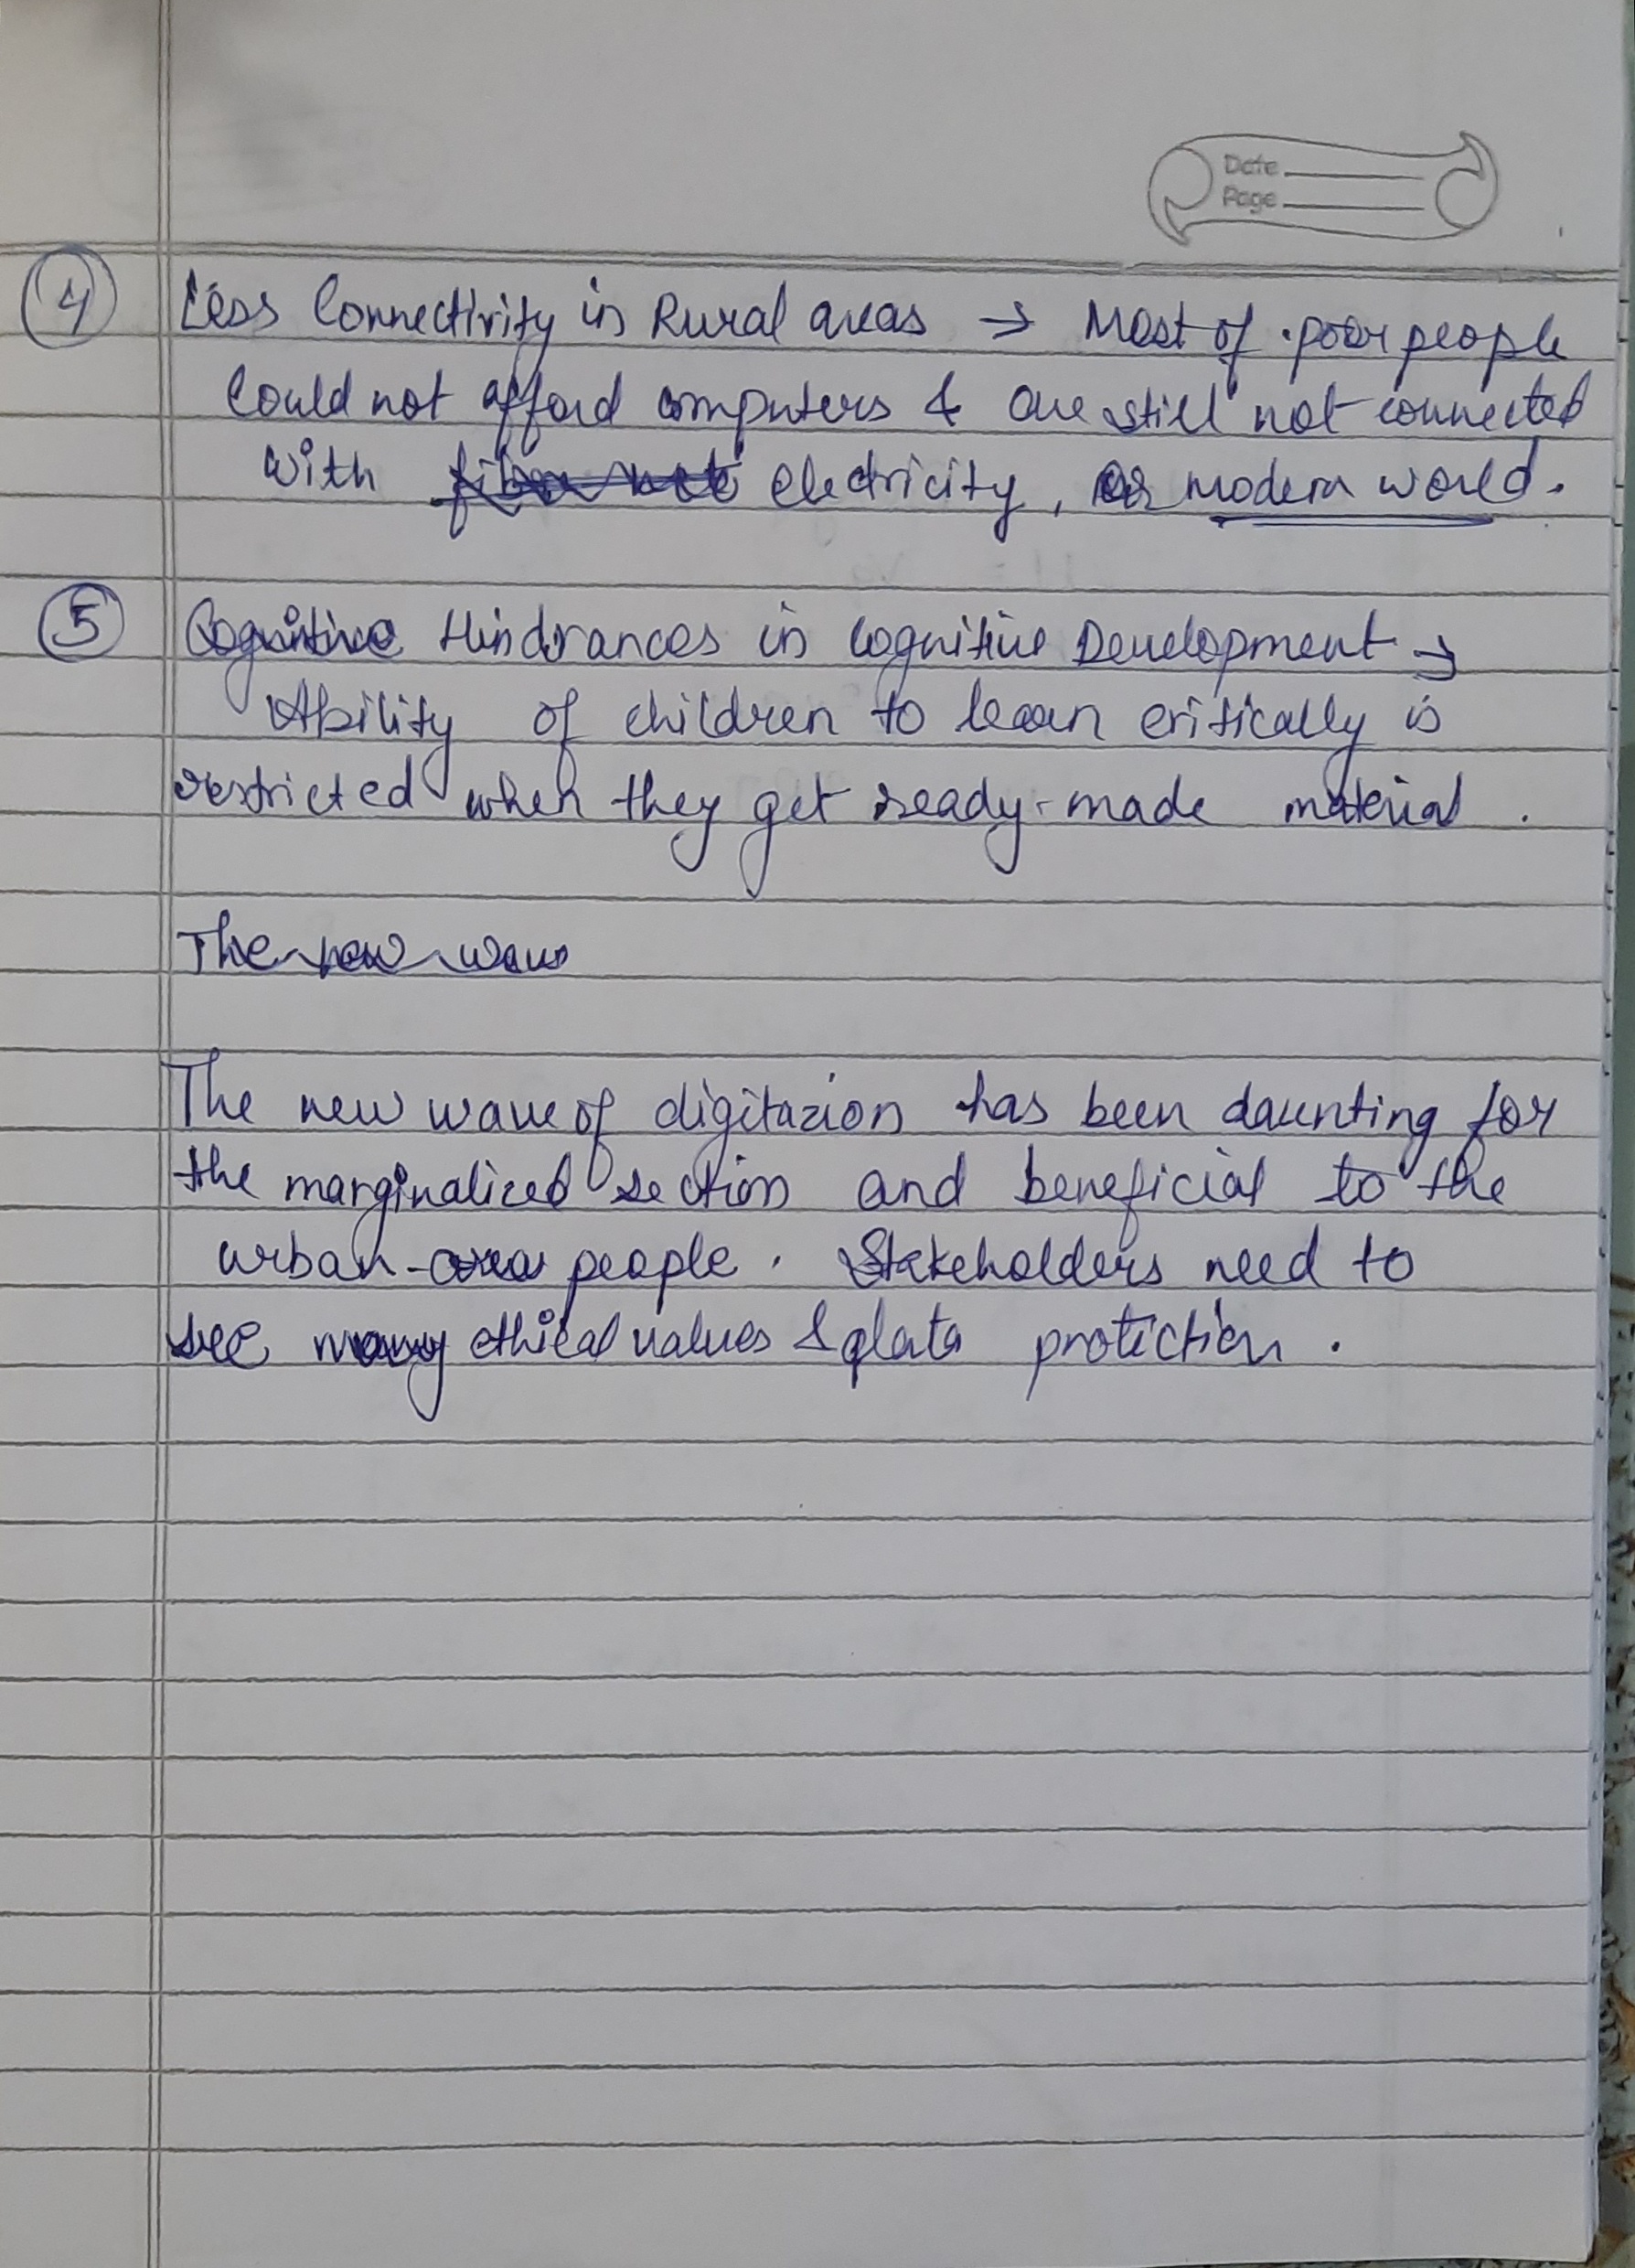 Date
Page
4 Less Connectivity in Rural areas → Most of poor people
Could not afford computers & are still not connected
with electricity, or modern world.
5 Cognitive Hindrances in Cognitive Development →
Ability of children to learn critically is
restricted when they get ready-made material.
The new wave
The new wave of digitazion has been daunting for
the marginalized section and beneficial to the
urban-area people. Stakeholders need to
see many ethical values & data protection.